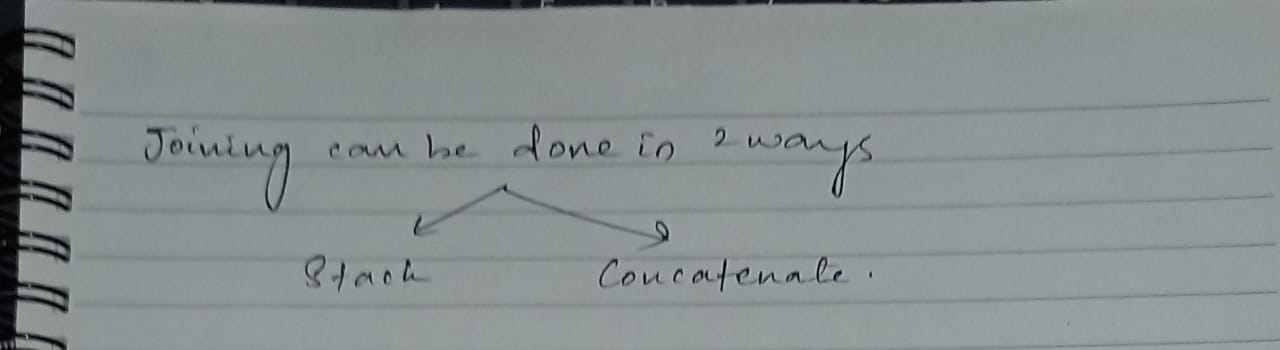 Joining can be done in 2 ways
Stack Concatenate.